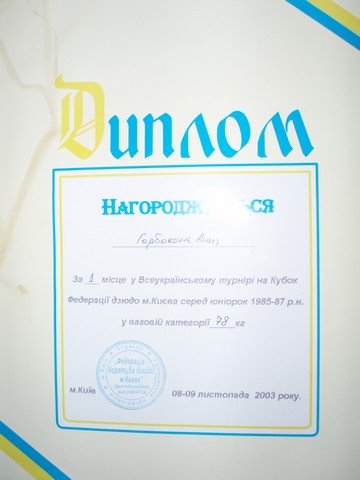 Диплом
НАГОРОДЖУЄТЬСЯ
За 1 місце у Всеукраїнському турнірі на Кубок
Федерації дзюдо м.Києва серед юніорок 1985-87 р.н.
у ваговій категорії 78 кг
м.Київ
08-09 листопада 2003 року.